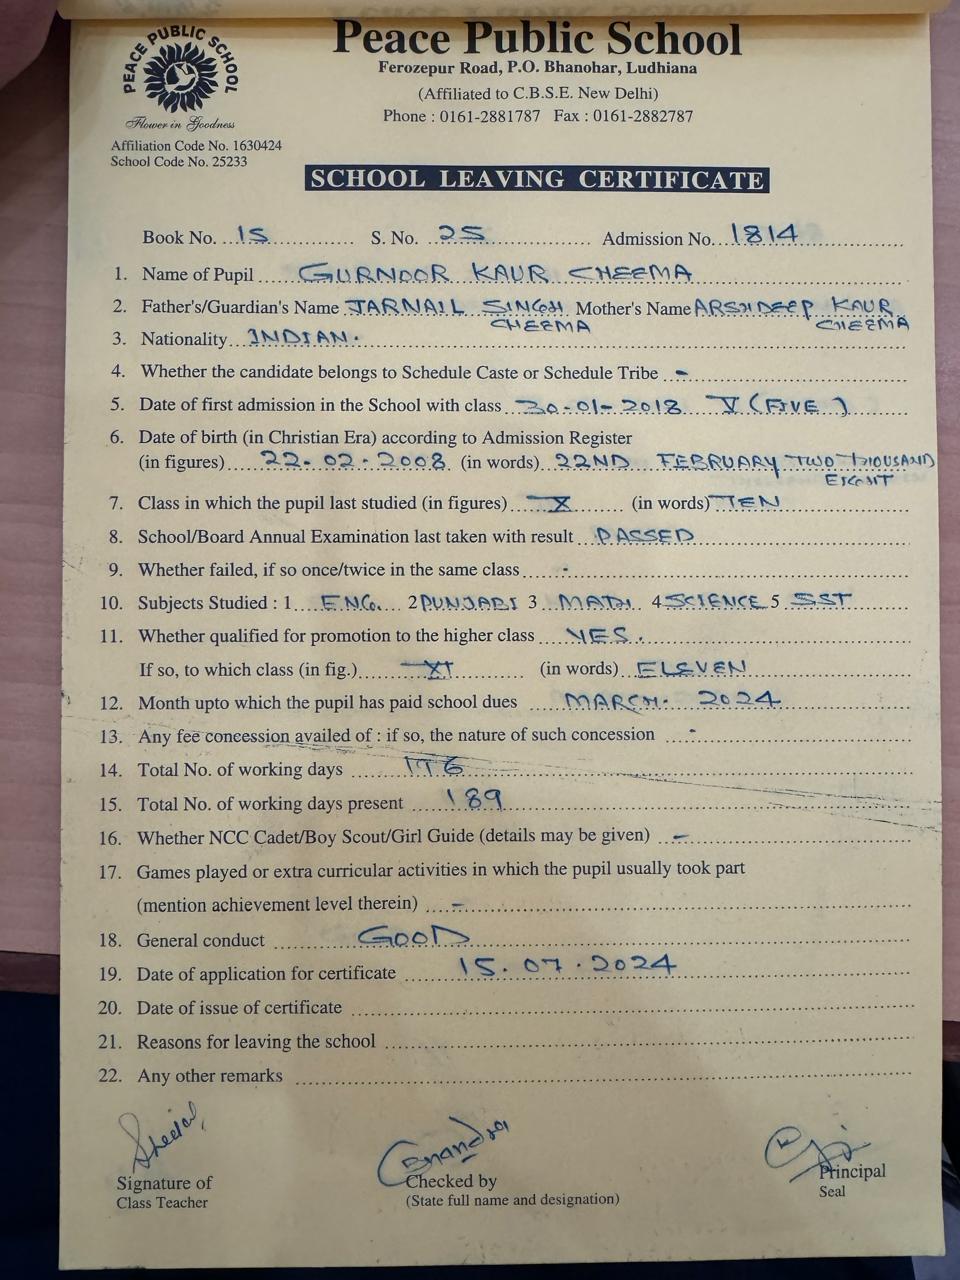 PEACE PUBLIC SCHOOL
Flower in Goodness
Affiliation Code No. 1630424
School Code No. 25233
Peace Public School
Ferozepur Road, P.O. Bhanohar, Ludhiana
(Affiliated to C.B.S.E. New Delhi)
Phone : 0161-2881787 Fax : 0161-2882787
SCHOOL LEAVING CERTIFICATE
Book No. 15 S. No. 25 Admission No. 1814
1. Name of Pupil GURNOOR KAUR CHEEMA
2. Father's/Guardian's Name JARNAIL SINGH CHEEMA Mother's Name ARSHDEEP KAUR CHEEMA
3. Nationality INDIAN.
4. Whether the candidate belongs to Schedule Caste or Schedule Tribe -
5. Date of first admission in the School with class 30-01-2018 V (FIVE)
6. Date of birth (in Christian Era) according to Admission Register
(in figures) 22-02-2008 (in words) 22ND FEBRUARY TWO THOUSAND EIGHT
7. Class in which the pupil last studied (in figures) X (in words) TEN
8. School/Board Annual Examination last taken with result PASSED
9. Whether failed, if so once/twice in the same class -
10. Subjects Studied : 1 ENG. 2 PUNJABI 3 MATH 4 SCIENCE 5 SST
11. Whether qualified for promotion to the higher class YES.
If so, to which class (in fig.) XI (in words) ELEVEN
12. Month upto which the pupil has paid school dues MARCH. 2024
13. Any fee concession availed of : if so, the nature of such concession -
14. Total No. of working days
15. Total No. of working days present 189
16. Whether NCC Cadet/Boy Scout/Girl Guide (details may be given) -
17. Games played or extra curricular activities in which the pupil usually took part
(mention achievement level therein) -
18. General conduct GOOD
19. Date of application for certificate 15.07.2024
20. Date of issue of certificate
21. Reasons for leaving the school
22. Any other remarks
Signature of
Class Teacher
Checked by
(State full name and designation)
Principal
Seal